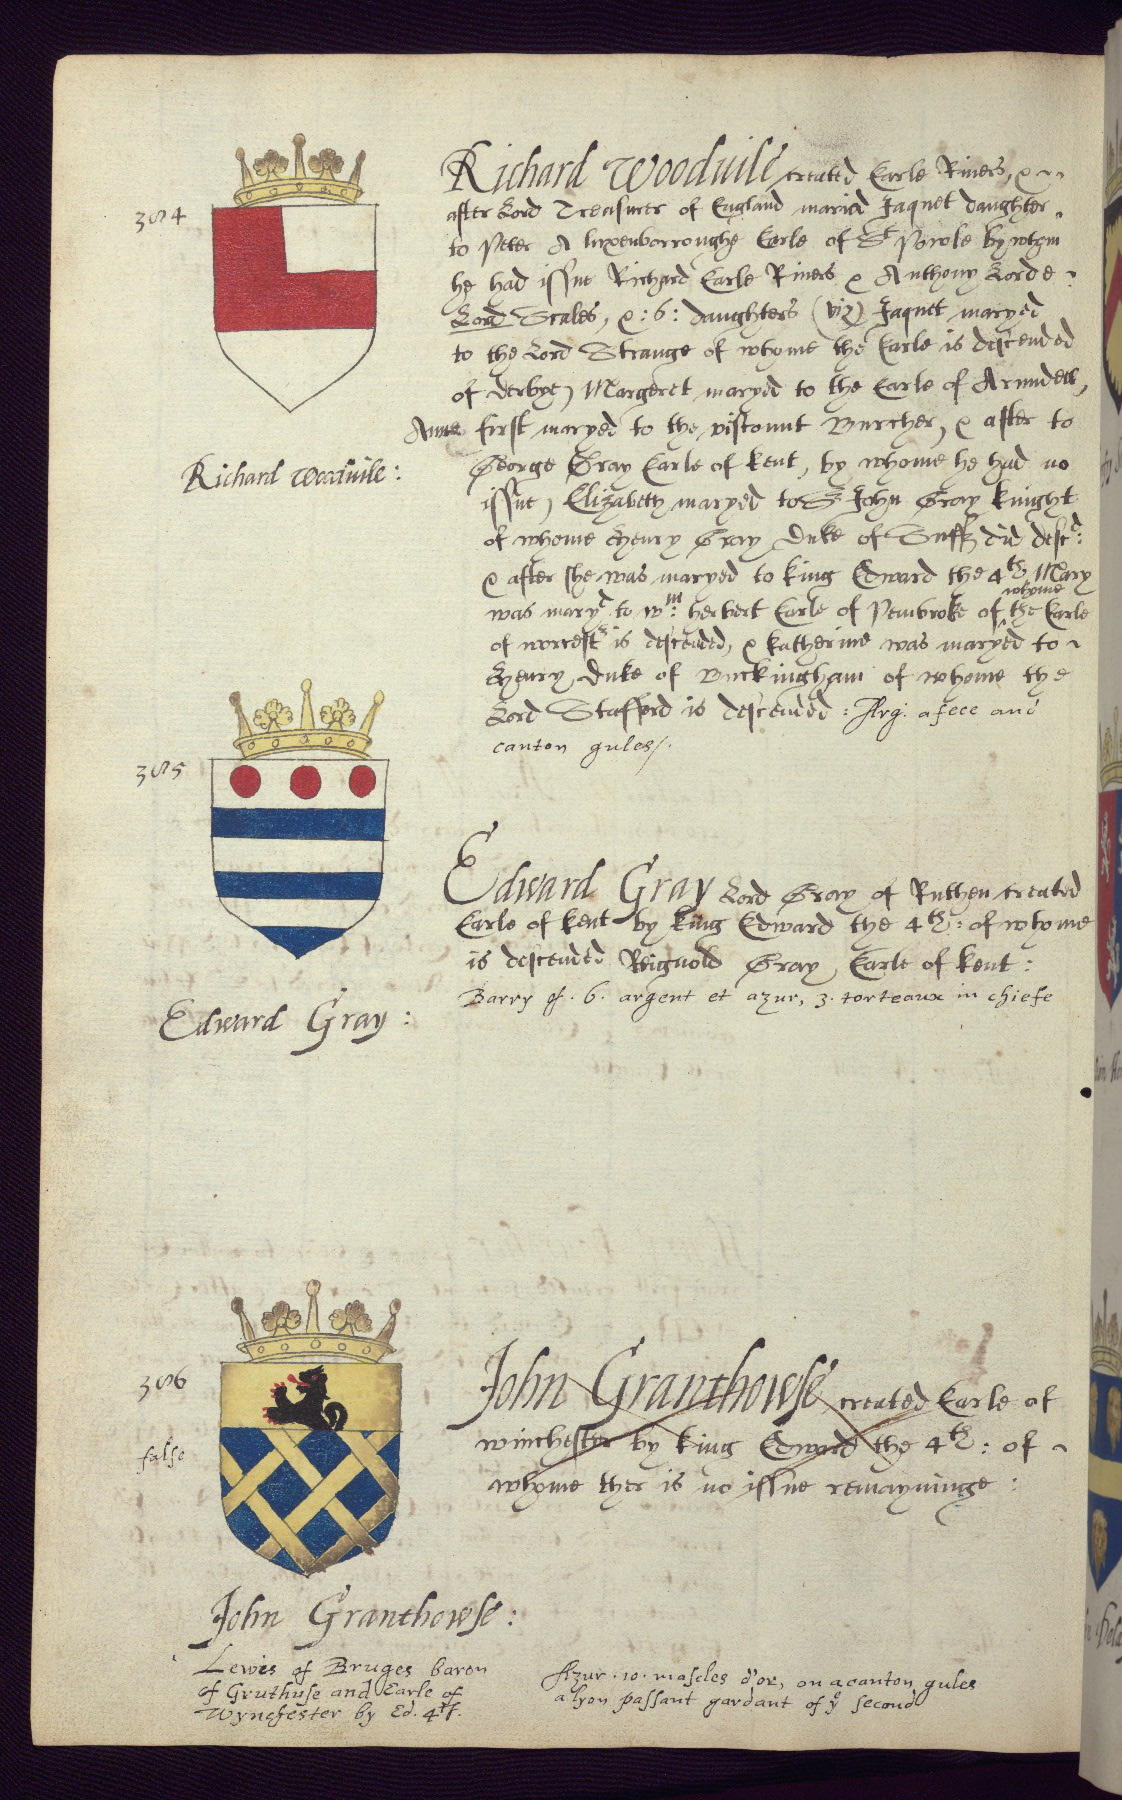 304
Richard Wooduile created Earle Riuers, &
after Lord Treasurer of England maried Jaquet daughter
to Peter A luxenborroughe Earle of St Powle by whom
he had issue Richard Earle Riuers & Anthony Lorde
Lord Scales, & :6: daughters (viz) Jaquet maryed
to the Lord Strange of whome the Earle is descended
of derbye, Margeret maryed to the Earle of Arundell,
Anne first maryed to the viscount Burcher, & after to
George Gray Earle of Kent, by whome he had no
issue, Elizabeth maryed to Sr John Gray knight
of whome Henry Gray Duke of Suff did descd:
& after she was maryed to king Edward the 4th Mary
was maryd to Wm: herbert Earle of Pembroke of whome the Earle
of worcestr is descended, & katherine was maryed to
Henry Duke of Buckingham of whome the
Lord Stafford is descended: Arg. a fece and
canton gules/.
Richard Wooduile:
305
Edward Gray Lord Gray of Ruthen created
Earle of Kent by king Edward the 4th: of whome
is descended Reignold Gray Earle of Kent:
Barry of .6. argent et azur, 3. torteaux in chiefe
Edward Gray:
306
false
John Granthowse created Earle of
winchester by king Edward the 4th: of
whome ther is no issue remayninge:
John Granthowse:
Lewis of Bruges baron
of Gruthuse and Earle of
Wynchester by Ed. 4th.
Azur .10. mascles d'or, on a canton gules
a lyon passant gardant of ye second